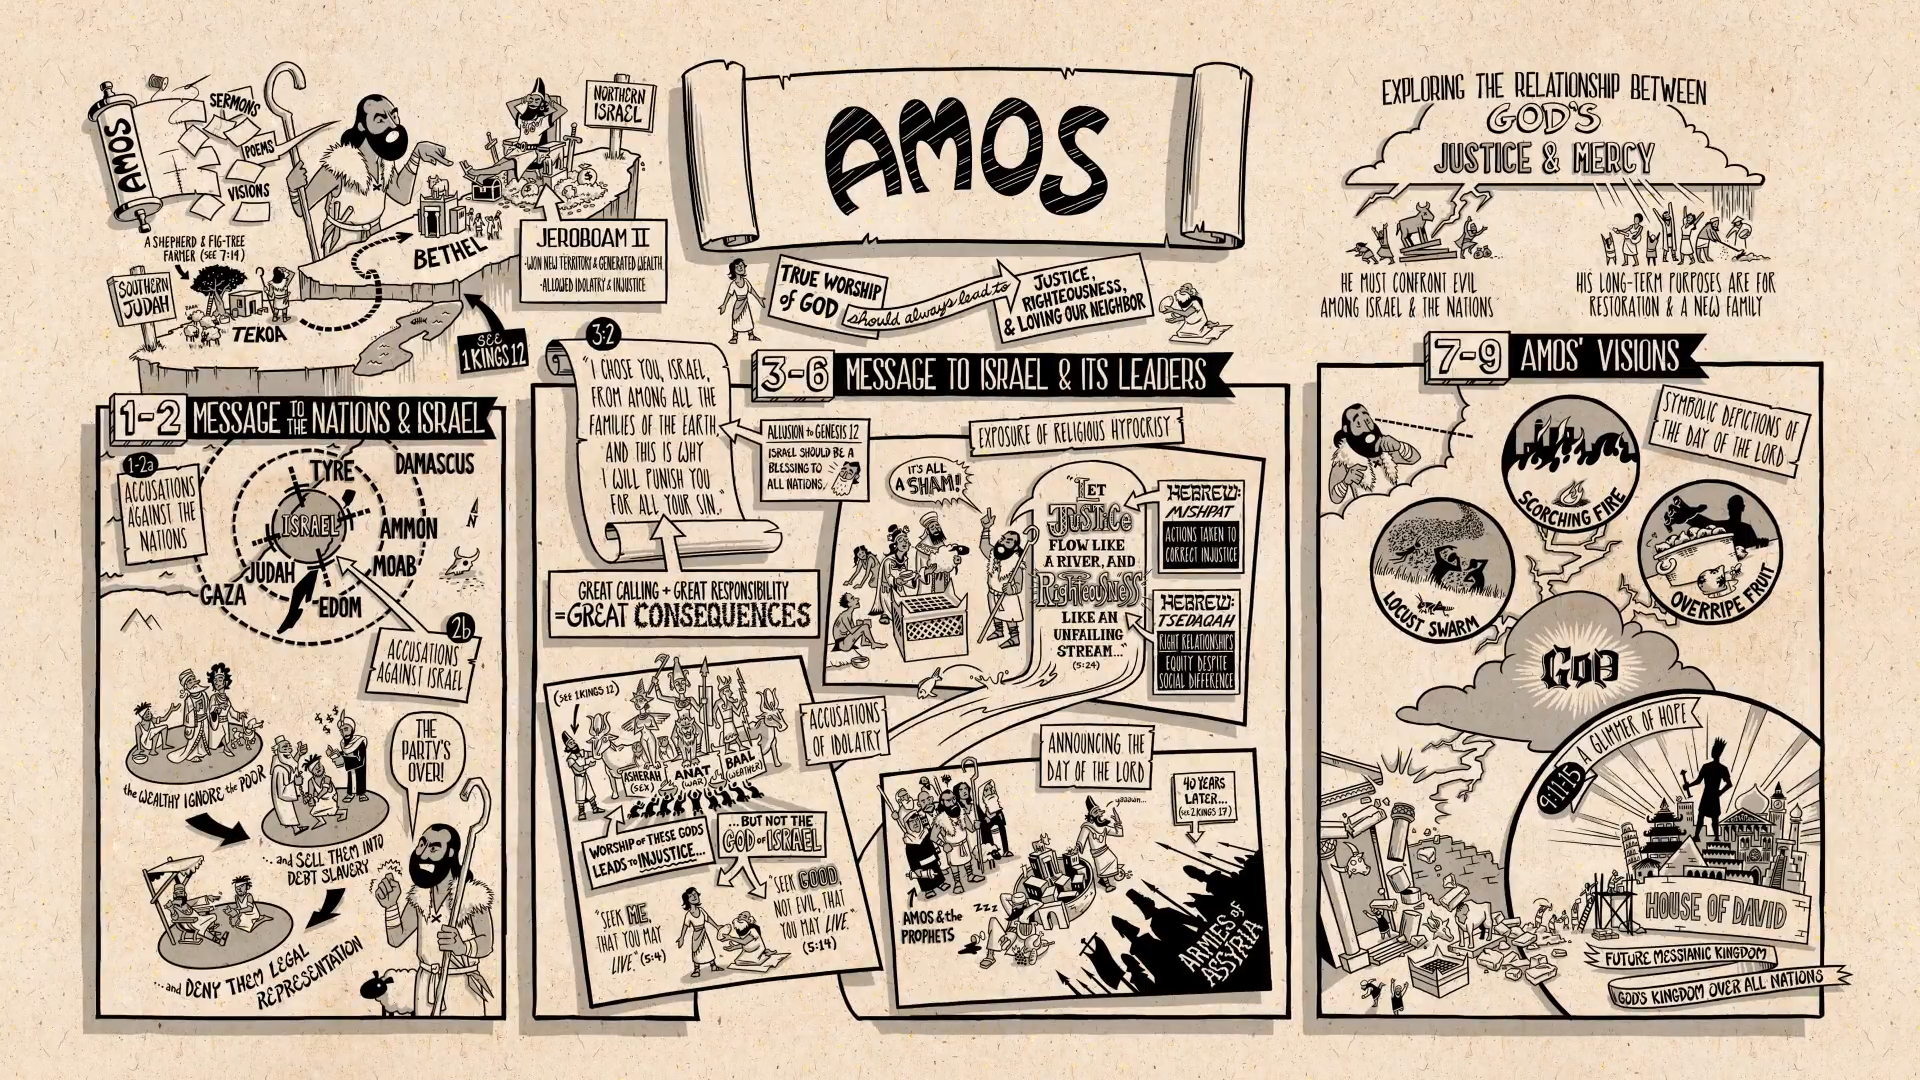 AMOS
SERMONS
POEMS
VISIONS
A SHEPHERD & FIG-TREE
FARMER (SEE 7:14)
SOUTHERN
JUDAH
TEKOA
BETHEL
NORTHERN
ISRAEL
JEROBOAM II
·WON NEW TERRITORY & GENERATED WEALTH
·ALLOWED IDOLATRY & INJUSTICE
SEE
1 KINGS 12
AMOS
TRUE WORSHIP
of GOD
should always lead to
JUSTICE,
RIGHTEOUSNESS,
& LOVING OUR NEIGHBOR
EXPLORING THE RELATIONSHIP BETWEEN
GOD'S
JUSTICE & MERCY
HE MUST CONFRONT EVIL
AMONG ISRAEL & THE NATIONS
HIS LONG-TERM PURPOSES ARE FOR
RESTORATION & A NEW FAMILY
1-2 MESSAGE TO THE NATIONS & ISRAEL
1-2a
ACCUSATIONS
AGAINST THE
NATIONS
TYRE
DAMASCUS
ISRAEL
AMMON
N
JUDAH
MOAB
GAZA
EDOM
2b
ACCUSATIONS
AGAINST ISRAEL
the WEALTHY IGNORE the POOR
$ $ $ $
...and SELL THEM INTO
DEBT SLAVERY
...and DENY THEM LEGAL
REPRESENTATION
THE
PARTY'S
OVER!
3:2
"I CHOSE YOU, ISRAEL,
FROM AMONG ALL THE
FAMILIES OF THE EARTH,
AND THIS IS WHY
I WILL PUNISH YOU
FOR ALL YOUR SIN."
3-6 MESSAGE TO ISRAEL & ITS LEADERS
ALLUSION to GENESIS 12
ISRAEL SHOULD BE A
BLESSING TO
ALL NATIONS.
GREAT CALLING + GREAT RESPONSIBILITY
=GREAT CONSEQUENCES
EXPOSURE OF RELIGIOUS HYPOCRISY
IT'S ALL
A SHAM!
"LET
JUSTICE
FLOW LIKE
A RIVER, AND
RIGHTEOUSNESS
LIKE AN
UNFAILING
STREAM..."
(5:24)
HEBREW:
MISHPAT
ACTIONS TAKEN TO
CORRECT INJUSTICE
HEBREW:
TSEDAQAH
RIGHT RELATIONSHIPS
EQUITY DESPITE
SOCIAL DIFFERENCE
(SEE 1 KINGS 12)
ACCUSATIONS
OF IDOLATRY
ASHERAH
(SEX)
ANAT
(WAR)
BAAL
(WEATHER)
WORSHIP OF THESE GODS
LEADS to INJUSTICE...
...BUT NOT THE
GOD of ISRAEL
"SEEK ME,
THAT YOU MAY
LIVE." (5:4)
"SEEK GOOD,
NOT EVIL, THAT
YOU MAY LIVE."
(5:14)
ANNOUNCING THE
DAY OF THE LORD
yaaawn...
40 YEARS
LATER...
(see 2 KINGS 17)
AMOS & the
PROPHETS
zzz
ARMIES OF
ASSYRIA
7-9 AMOS' VISIONS
SYMBOLIC DEPICTIONS OF
THE DAY OF THE LORD
SCORCHING FIRE
LOCUST SWARM
OVERRIPE FRUIT
GOD
9:11-15
A GLIMMER OF HOPE
HOUSE OF DAVID
FUTURE MESSIANIC KINGDOM
GOD'S KINGDOM OVER ALL NATIONS